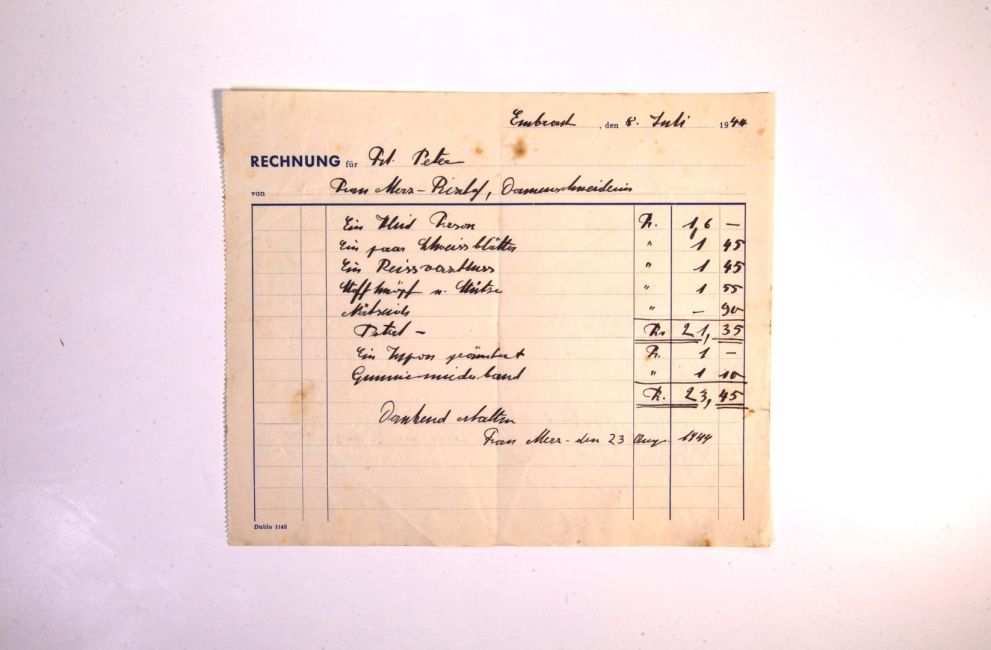 Embrach, den 8. Juli 1944
RECHNUNG für Frl. Peter
von Frau Merz-, Damenschneiderin
Ein Kleid Fr. 16 —
Ein paar Schweissblätter " 1 45
Ein Reissverschluss " 1 45
Stoffknöpf u. " 1 55
Nähseide " — 90
Total — Fr. 21,35
Ein Jupon geändert Fr. 1 —
Gummi " 1 10
Fr. 23,45
Dankend erhalten
Frau Merz - den 23 Aug. 1944
Dublo 1148